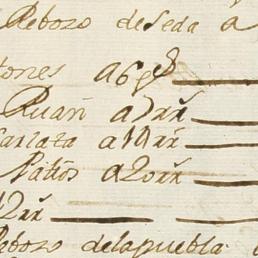 Rebozo de Seda a
tones a6 ps
Ruan a7 rr
arlata a10 rr
Patios a20 rr
12 rr
Rebozo de la puebla